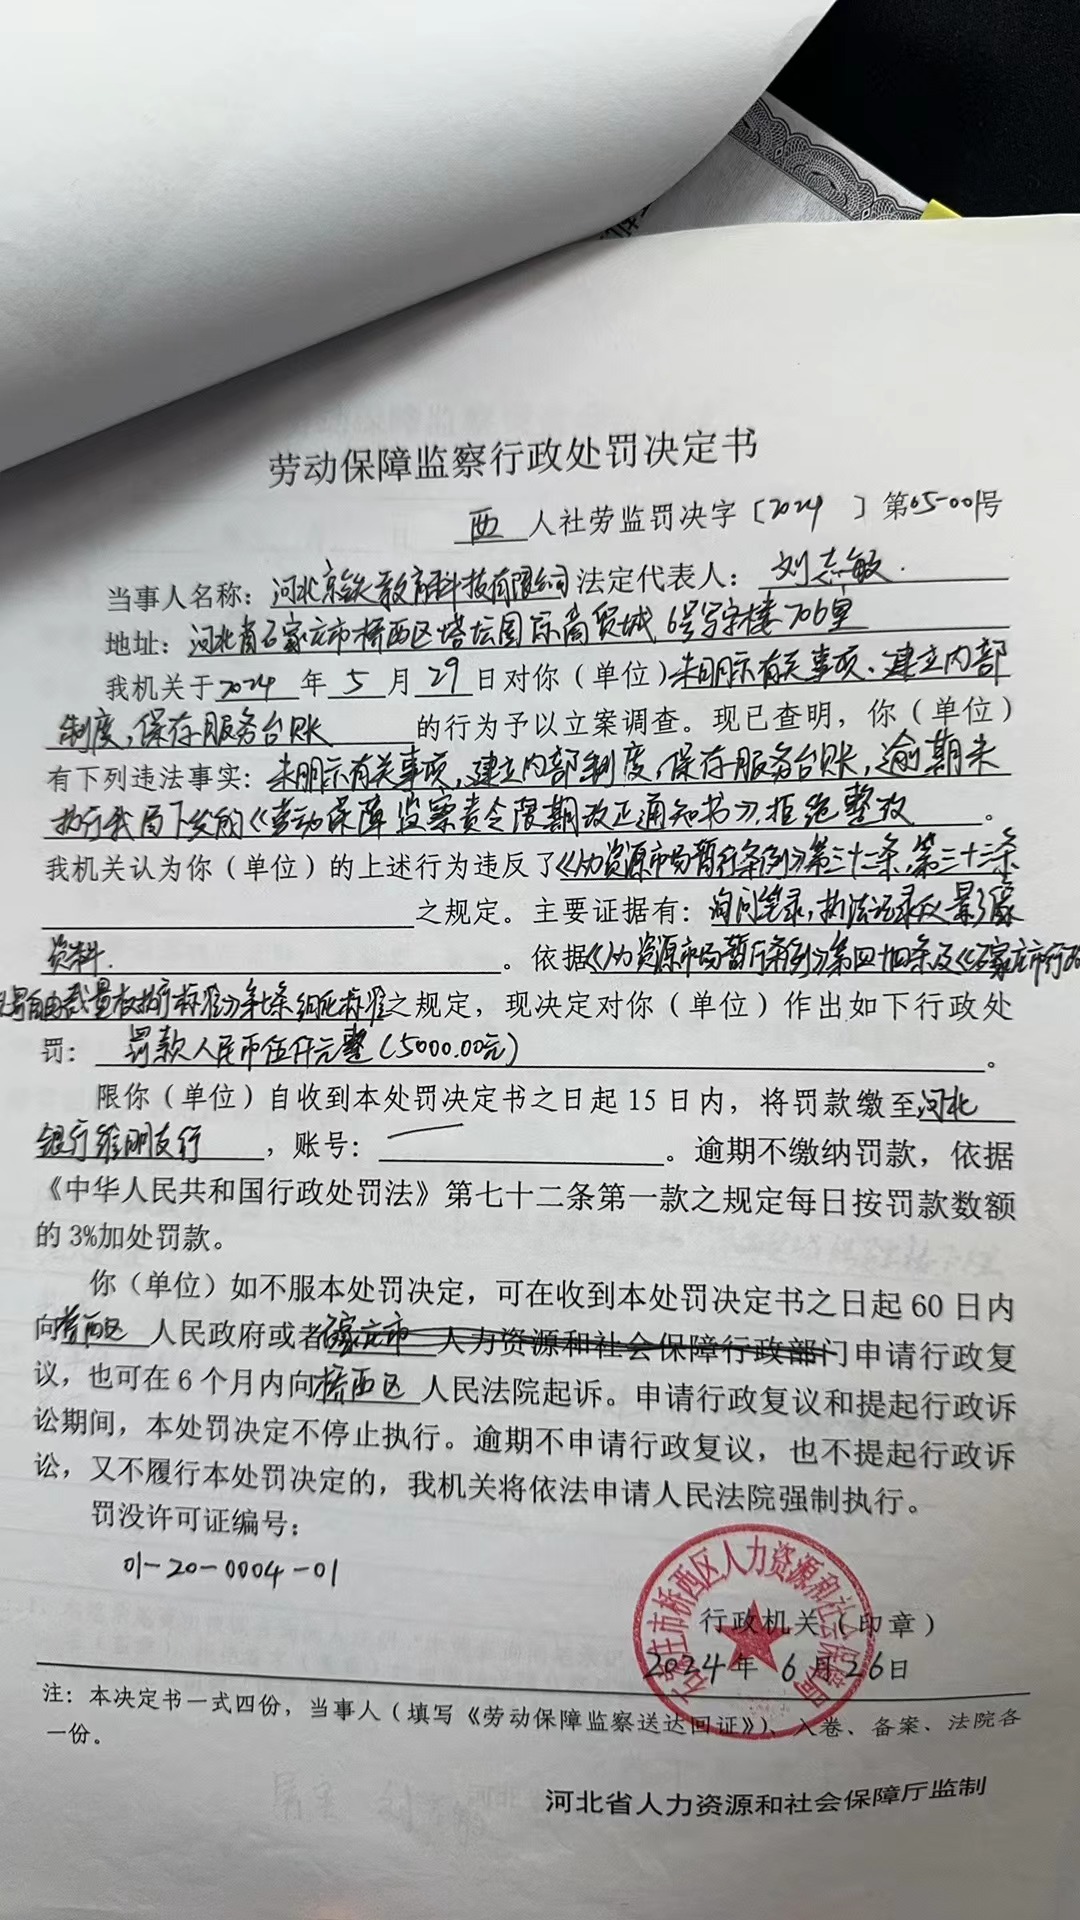 劳动保障监察行政处罚决定书
西 人社劳监罚决字〔2024 〕第05-001号
当事人名称：河北京铁教育科技有限公司 法定代表人：刘志敏
地址：河北省石家庄市桥西区塔坛国际商贸城6号写字楼706室
我机关于2024年5月29日对你（单位）未明示有关事项、建立内部
制度，保存服务台账 的行为予以立案调查。现已查明，你（单位）
有下列违法事实：未明示有关事项，建立内部制度，保存服务台账，逾期未
执行我局下发的《劳动保障监察责令限期改正通知书》，拒绝整改。
我机关认为你（单位）的上述行为违反了《人力资源市场暂行条例》第三十二条、第三十三条
之规定。主要证据有：询问笔录，执法记录及影像
资料。依据《人力资源市场暂行条例》第四十四条及《石家庄市行政
处罚自由裁量权执行标准》第七条细化标准之规定，现决定对你（单位）作出如下行政处
罚：罚款人民币伍仟元整（5000.00元）。
限你（单位）自收到本处罚决定书之日起15日内，将罚款缴至河北
银行维明支行，账号：——。逾期不缴纳罚款，依据
《中华人民共和国行政处罚法》第七十二条第一款之规定每日按罚款数额
的3%加处罚款。
你（单位）如不服本处罚决定，可在收到本处罚决定书之日起60日内
向桥西区人民政府或者石家庄市人力资源和社会保障行政部门申请行政复
议，也可在6个月内向桥西区人民法院起诉。申请行政复议和提起行政诉
讼期间，本处罚决定不停止执行。逾期不申请行政复议，也不提起行政诉
讼，又不履行本处罚决定的，我机关将依法申请人民法院强制执行。
罚没许可证编号：
01-20-0004-01
石家庄市桥西区人力资源和社会保障局
行政机关（印章）
2024年6月26日
注：本决定书一式四份，当事人（填写《劳动保障监察送达回证》）、入卷、备案、法院各
一份。
河北省人力资源和社会保障厅监制